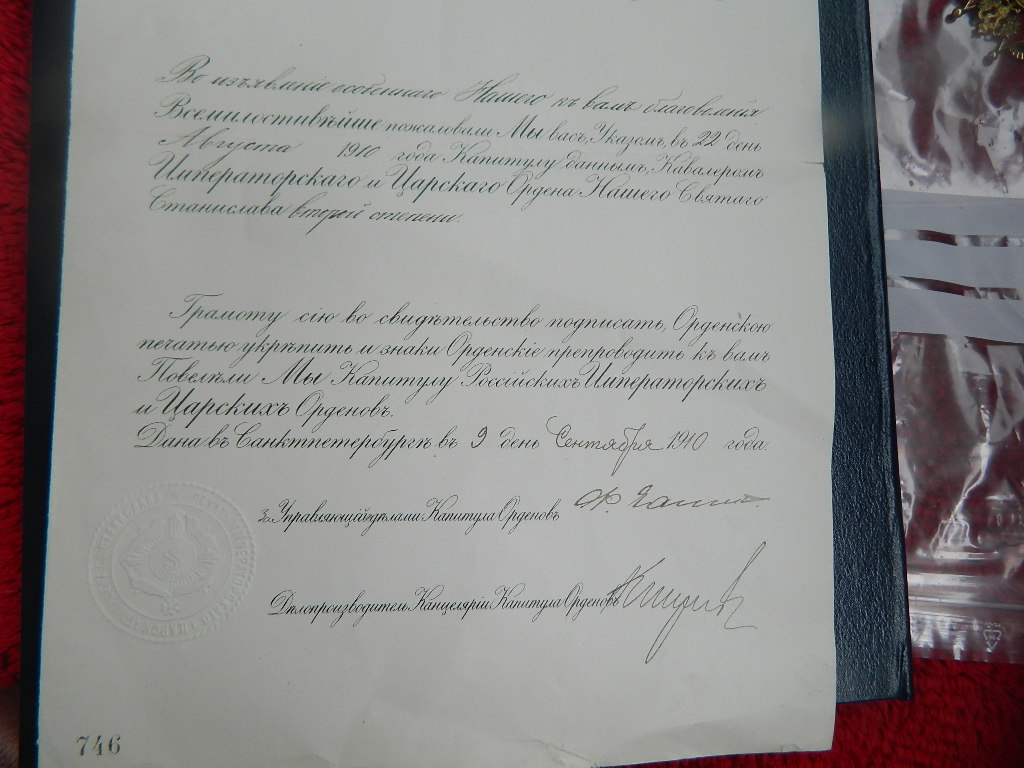 Во изъявленіе особеннаго Нашего къ вамъ благоволенія
Всемилостивѣйше пожаловали Мы васъ, Указомъ, въ 22 день
Августа 1910 года Капитулу даннымъ, Кавалеромъ
Императорскаго и Царскаго Ордена Нашего Святаго
Станислава второй степени.
Грамоту сію во свидѣтельство подписать, Орденскою
печатью укрѣпить и знаки Орденскіе препроводить къ вамъ
Повелѣли Мы Капитулу Россійскихъ Императорскихъ
и Царскихъ Орденовъ.
Дана въ Санктпетербургѣ въ 9 день Сентября 1910 года.
За Управляющій дѣлами Капитула Орденовъ
Дѣлопроизводитель Канцеляріи Капитула Орденовъ
746